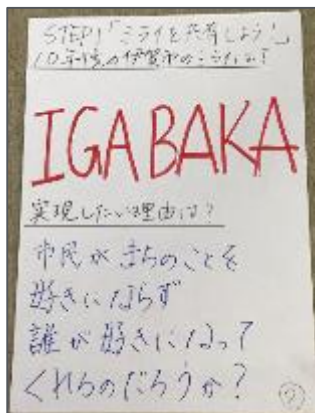 STEP1「ミライを共有しよう!」
10年後の伊賀市のミライは?
IGABAKA
実現したい理由は?
市民がまちのことを
好きにならず
誰が好きになって
くれるのだろうか?
⑦